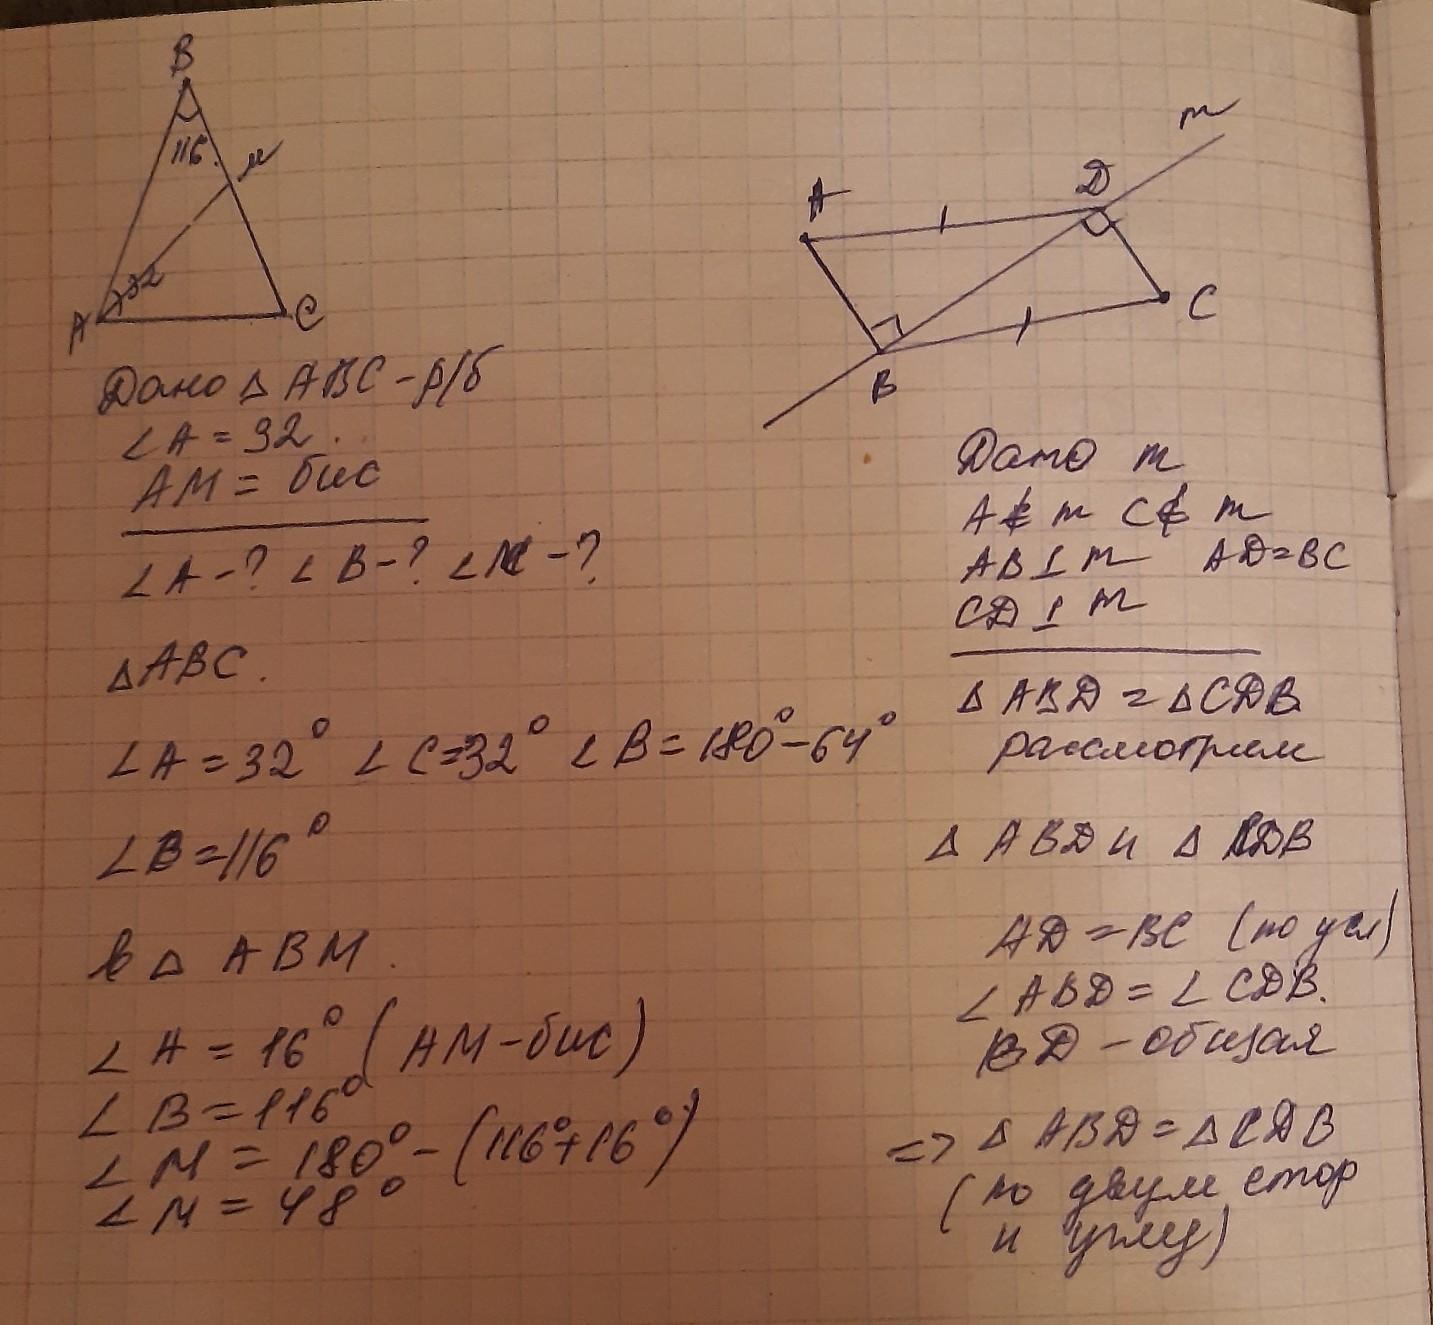 B
116
м
32
A
C
Дано △ ABC - р/б
∠A = 32.
AM = бис
∠A-? ∠B-? ∠M-?
△ABC.
∠A = 32° ∠C=32° ∠B = 180°-64°
∠B=116°
в △ ABM.
∠A = 16° (AM-бис)
∠B = 116°
∠M = 180° - (116°+16°)
∠M = 48°
m
A
D
C
B
Дано m
A∉m C∉m
AB⊥m AD=BC
CD⊥m
△ABD = △CDB
рассмотрим
△ ABD и △ CDB
AD = BC (по усл)
∠ABD = ∠CDB.
BD - общая
=> △ABD = △CDB
(по двум стор
и углу)